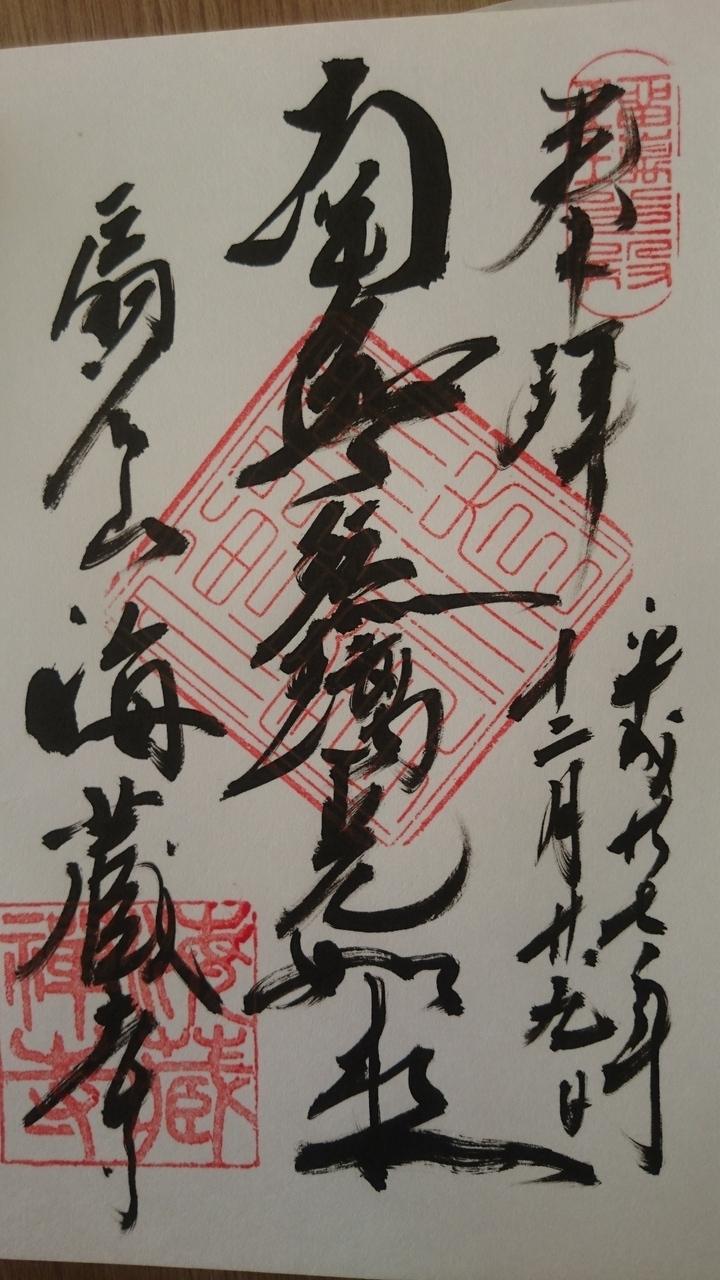 奉拝
平成廿七年
十二月廿九日
南無瑠璃光如来
扇谷山
海蔵寺
海蔵
禅寺